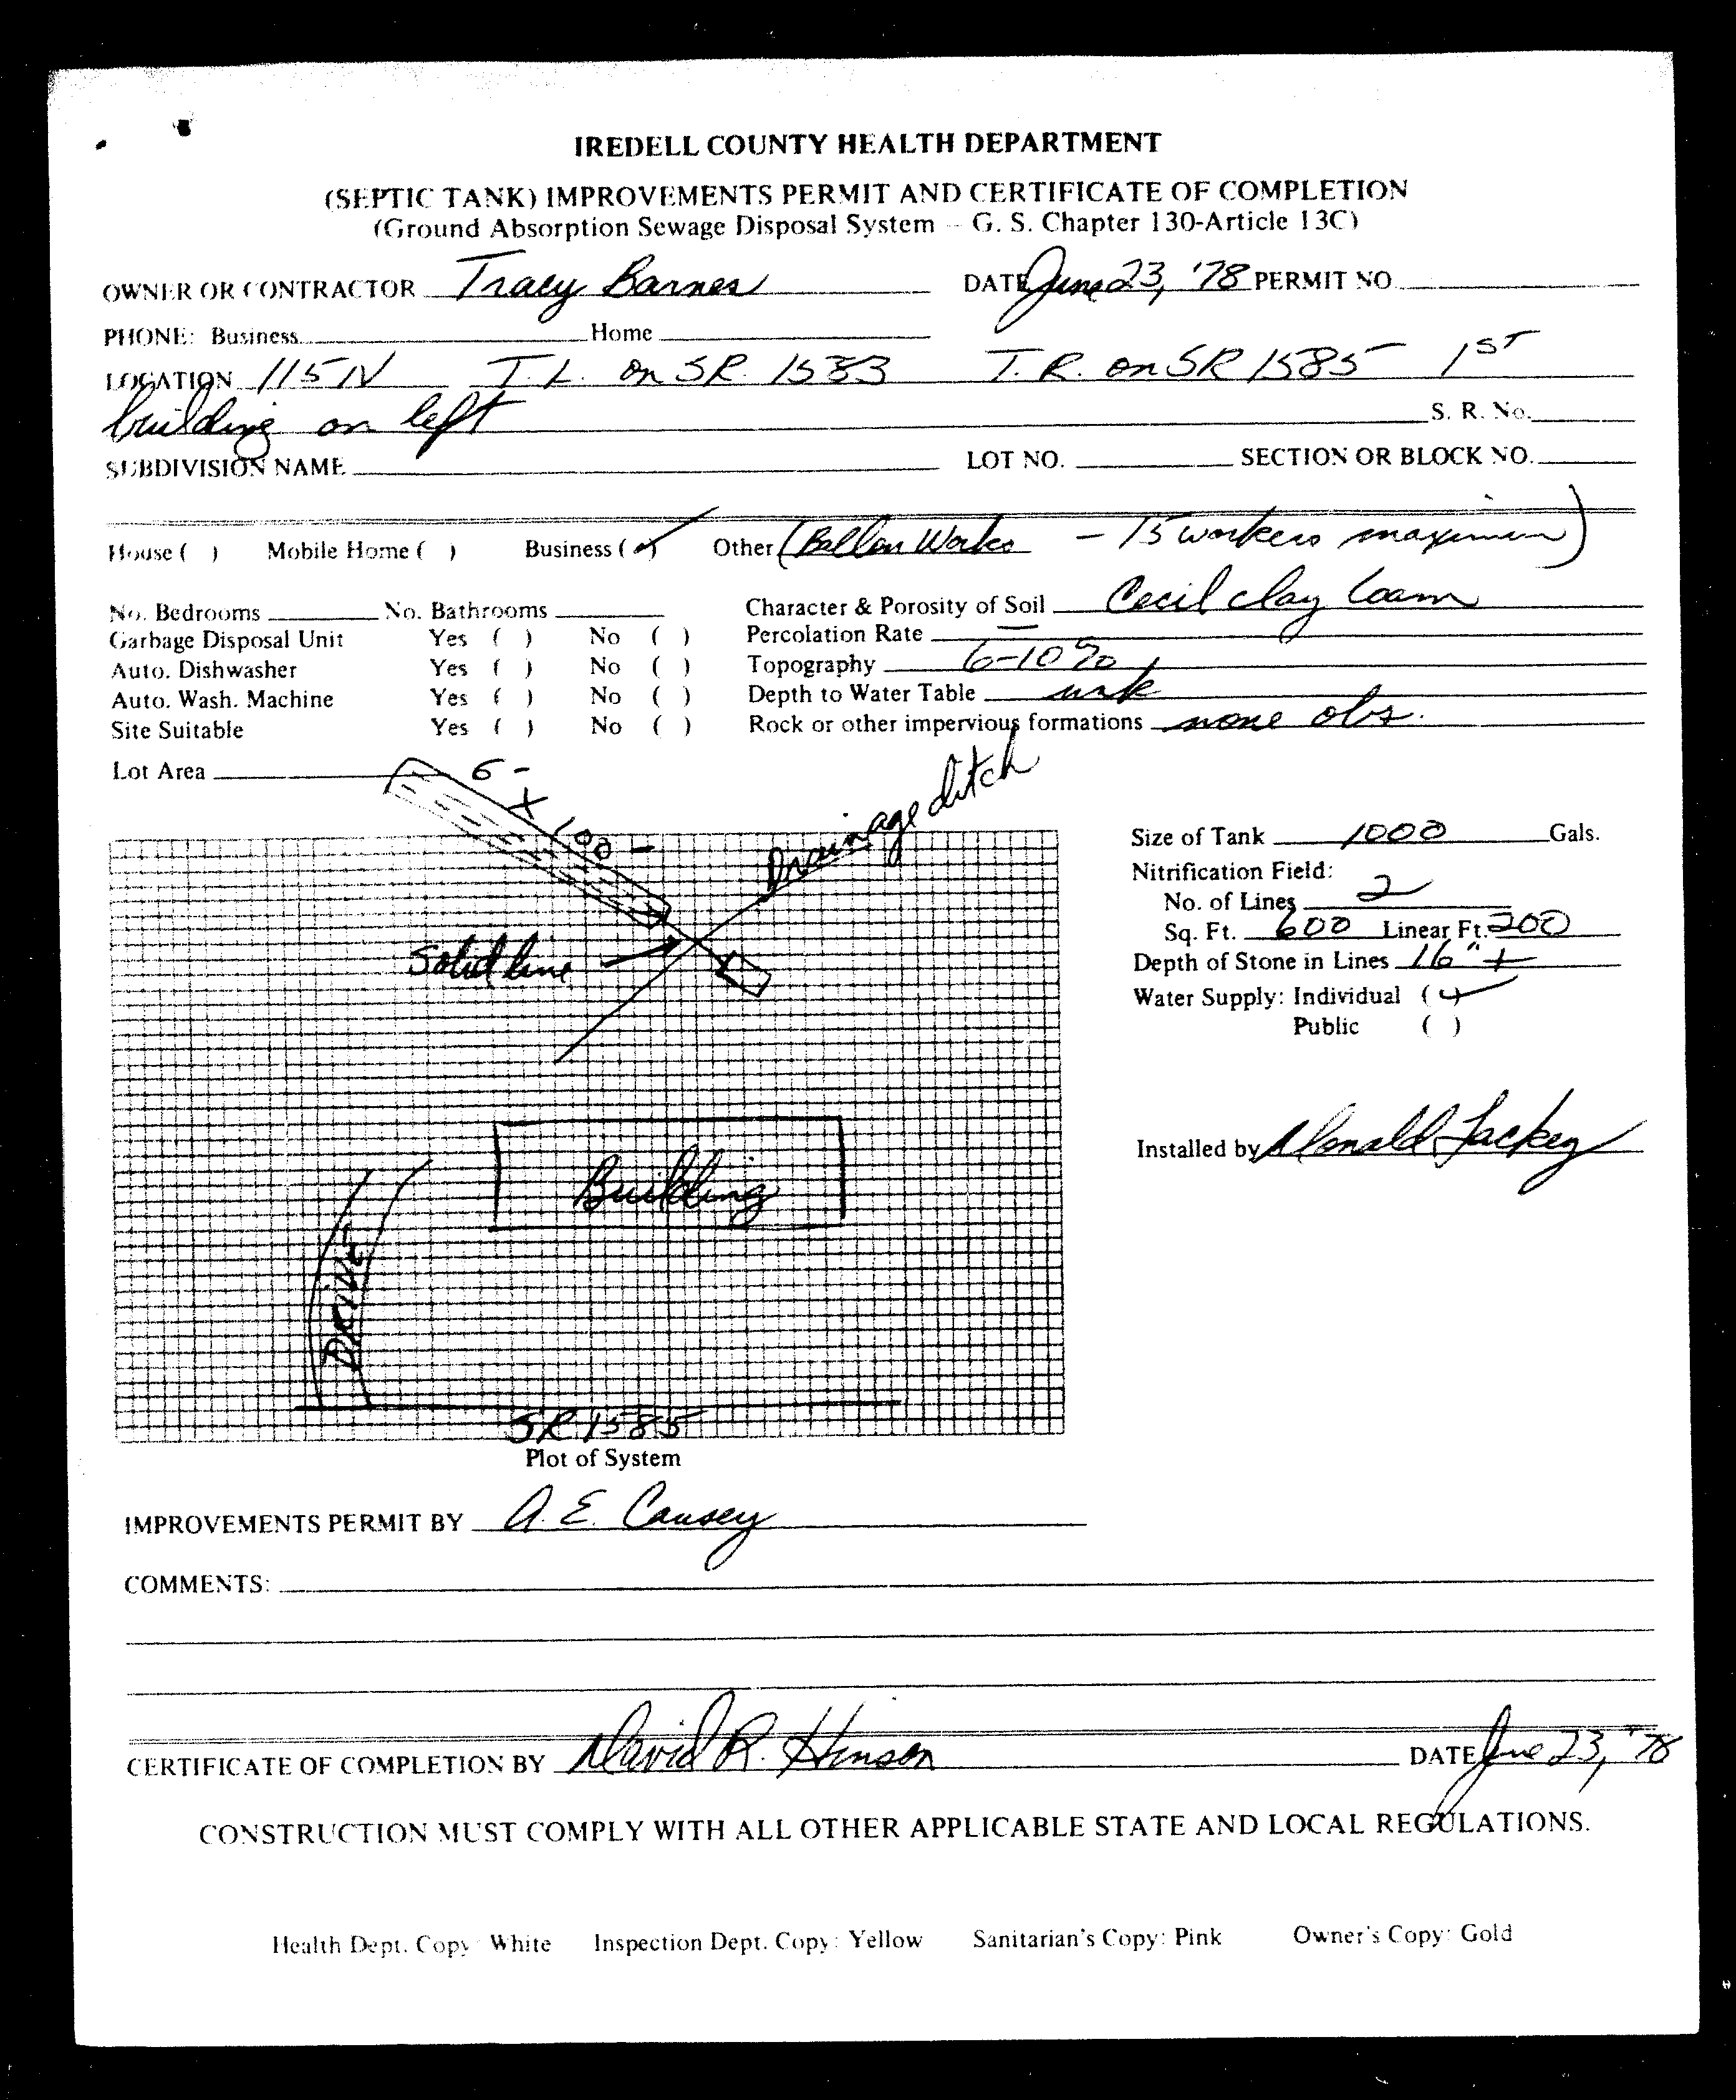 IREDELL COUNTY HEALTH DEPARTMENT
(SEPTIC TANK) IMPROVEMENTS PERMIT AND CERTIFICATE OF COMPLETION
(Ground Absorption Sewage Disposal System – G. S. Chapter 130-Article 13C)
OWNER OR CONTRACTOR Tracy Barnes DATE June 23, '78 PERMIT NO.
PHONE: Business Home
LOCATION 115 N T.L. on SR. 1583 T.R. on SR 1585 1ST
building on left S. R. No.
SUBDIVISION NAME LOT NO. SECTION OR BLOCK NO.
House ( ) Mobile Home ( ) Business (✓) Other (Ballon Works – 15 workers maximum)
No. Bedrooms No. Bathrooms Character & Porosity of Soil Cecil clay loam
Garbage Disposal Unit Yes ( ) No ( ) Percolation Rate —
Auto. Dishwasher Yes ( ) No ( ) Topography 6-10%
Auto. Wash. Machine Yes ( ) No ( ) Depth to Water Table unk
Site Suitable Yes ( ) No ( ) Rock or other impervious formations none obs.
Lot Area
6 - X 100 -
Drainage ditch
Size of Tank 1000 Gals.
Nitrification Field:
No. of Lines 2
Sq. Ft. 600 Linear Ft. 200
Solid line
Depth of Stone in Lines 16" +
Water Supply: Individual (✓)
Public ( )
Building
Installed by Donald Lackey
DRIVE
SR 1585
Plot of System
IMPROVEMENTS PERMIT BY A. E. Causey
COMMENTS:
CERTIFICATE OF COMPLETION BY David R. Hinson DATE June 23, '78
CONSTRUCTION MUST COMPLY WITH ALL OTHER APPLICABLE STATE AND LOCAL REGULATIONS.
Health Dept. Copy: White Inspection Dept. Copy: Yellow Sanitarian's Copy: Pink Owner's Copy: Gold